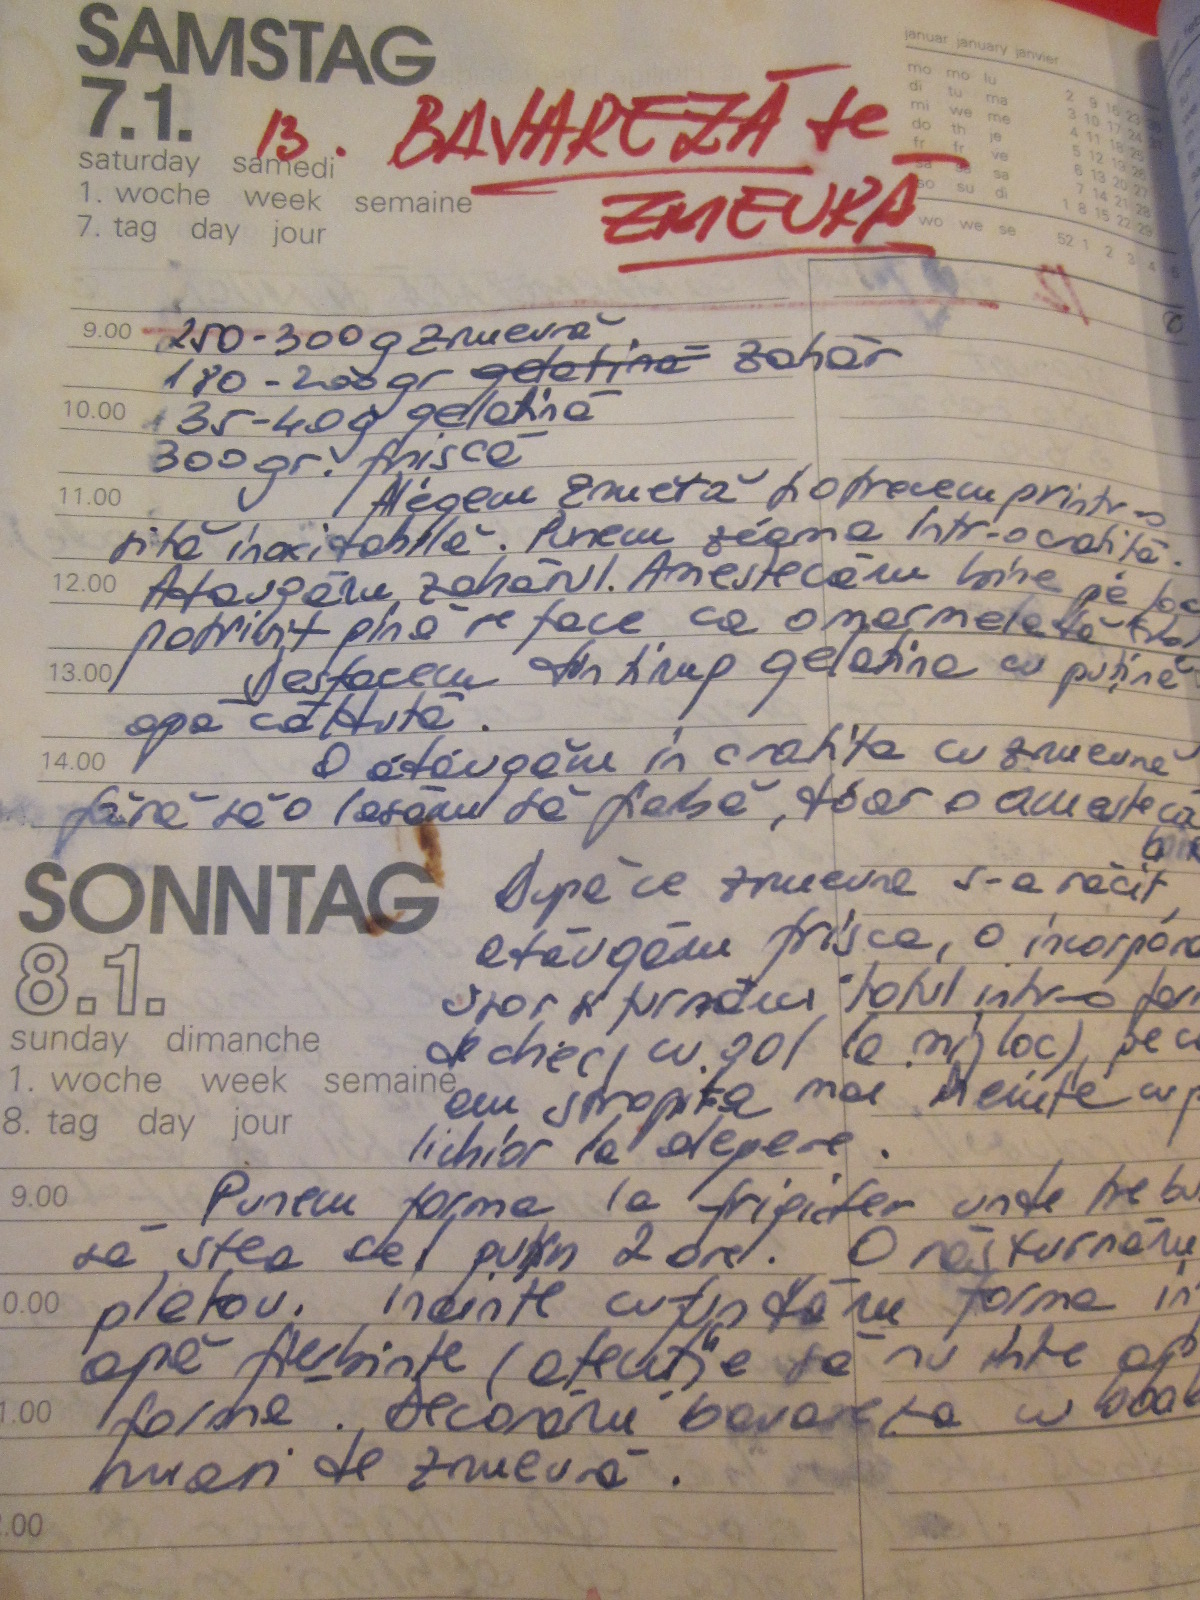 SAMSTAG
7.1.
saturday samedi
1. woche week semaine
7. tag day jour
januar january janvier
mo mo lu 2 9 16 23
di tu ma 3 10 17 24
mi we me 4 11 18 25
do th je 5 12 19 26
fr fr ve 6 13 20 27
sa sa sa 7 14 21 28
so su di 1 8 15 22 29
wo we se 52 1 2 3 4
13. BAVAREZĂ de
ZMEURĂ
12
9.00 250-300 g zmeură
180-200 gr gelatină zahăr
10.00 35-40 g gelatină
300 gr. frișcă
11.00 Alegem zmeura și o trecem printr-o
sită inoxidabilă. Punem zeama într-o cratiță.
12.00 Adăugăm zahărul. Amestecăm bine pe foc
potrivit pînă se face ca o marmeladă
13.00 Desfacem din timp gelatina cu puțină
apă călduță.
14.00 O adăugăm în cratița cu zmeură
fără să o lasăm să fiarbă, doar o amestecă
SONNTAG
8.1.
sunday dimanche
1. woche week semaine
8. tag day jour
După ce zmeura s-a răcit,
adăugăm frișca, o incorporă
ușor și turnăm totul intr-o for
de chec, cu gol la mijloc), pe c
am stropit-o mai înainte cu p
lichior la alegere.
9.00 Punem forma la frigider unde trebu
să stea cel puțin 2 ore. O răsturnăm
0.00 platou. inainte cufundăm forma in
apă fierbinte (atenție să nu intre ap
1.00 formă. Decorăm bavareza cu boab
mari de zmeură.
2.00